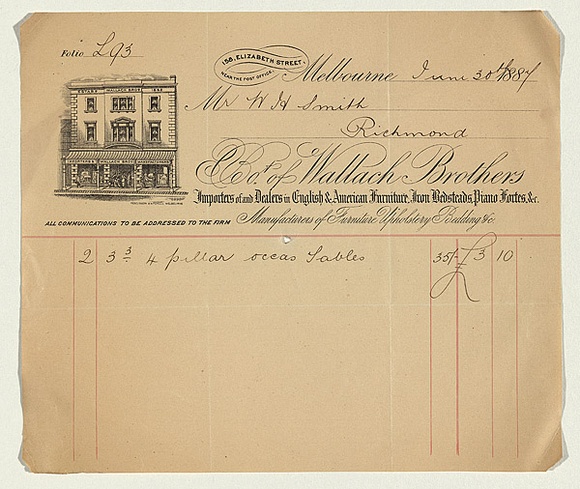 Folio L93
158, ELIZABETH STREET,
NEAR THE POST OFFICE.
Melbourne June 30th 1887
Mr W H Smith
Richmond
ESTABD WALLACH BROS 
Bot of Wallach Brothers
Importers of and Dealers in English & American Furniture, Iron Bedsteads, Piano Fortes, &c.
ALL COMMUNICATIONS TO BE ADDRESSED TO THE FIRM
Manufacturers of Furniture Upholstery Bedding &c.
2 3 3 4 pillar occas Tables 35/- £3 10